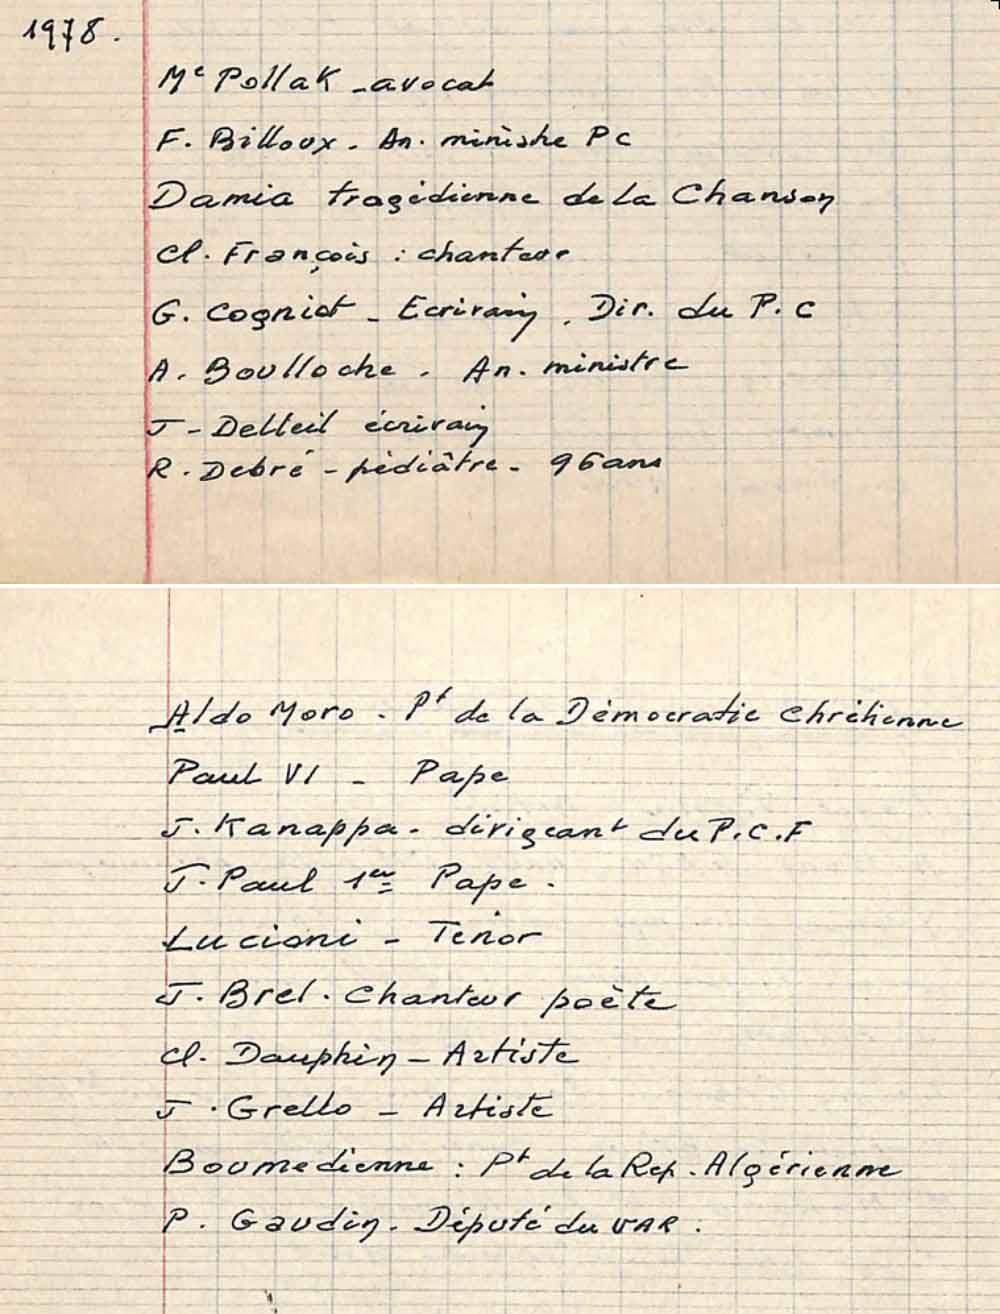 1978.
Me Pollak - avocat
F. Billoux - An. ministre PC
Damia tragédienne de la Chanson
Cl. François : chanteur
G. Cogniot - Ecrivain. Dir. du P.C
A. Boulloche - An. ministre
J - Delteil écrivain
R. Debré - pédiâtre - 96 ans
Aldo Moro - Pt de la Démocratie chrétienne
Paul VI - Pape
J. Kanappa - dirigeant du P.C.F
J. Paul 1er Pape.
Lucioni - Ténor
J. Brel. Chanteur poète
Cl. Dauphin - Artiste
J. Grello - Artiste
Boumedienne : Pt de la Rep. Algérienne
P. Gaudin - Député du VAR.